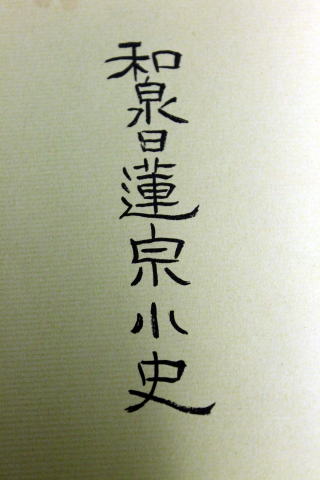 和泉日蓮宗小史